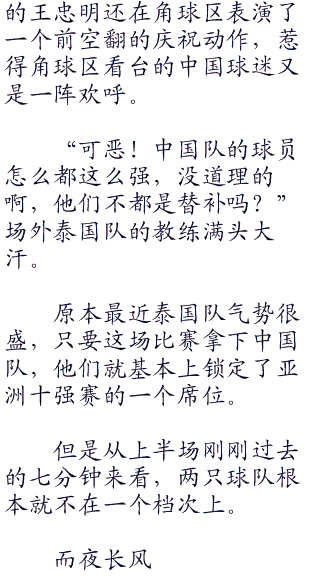 的王忠明还在角球区表演了
一个前空翻的庆祝动作，惹
得角球区看台的中国球迷又
是一阵欢呼。
“可恶！中国队的球员
怎么都这么强，没道理的
啊，他们不都是替补吗？”
场外泰国队的教练满头大
汗。
原本最近泰国队气势很
盛，只要这场比赛拿下中国
队，他们就基本上锁定了亚
洲十强赛的一个席位。
但是从上半场刚刚过去
的七分钟来看，两只球队根
本就不在一个档次上。
而夜长风